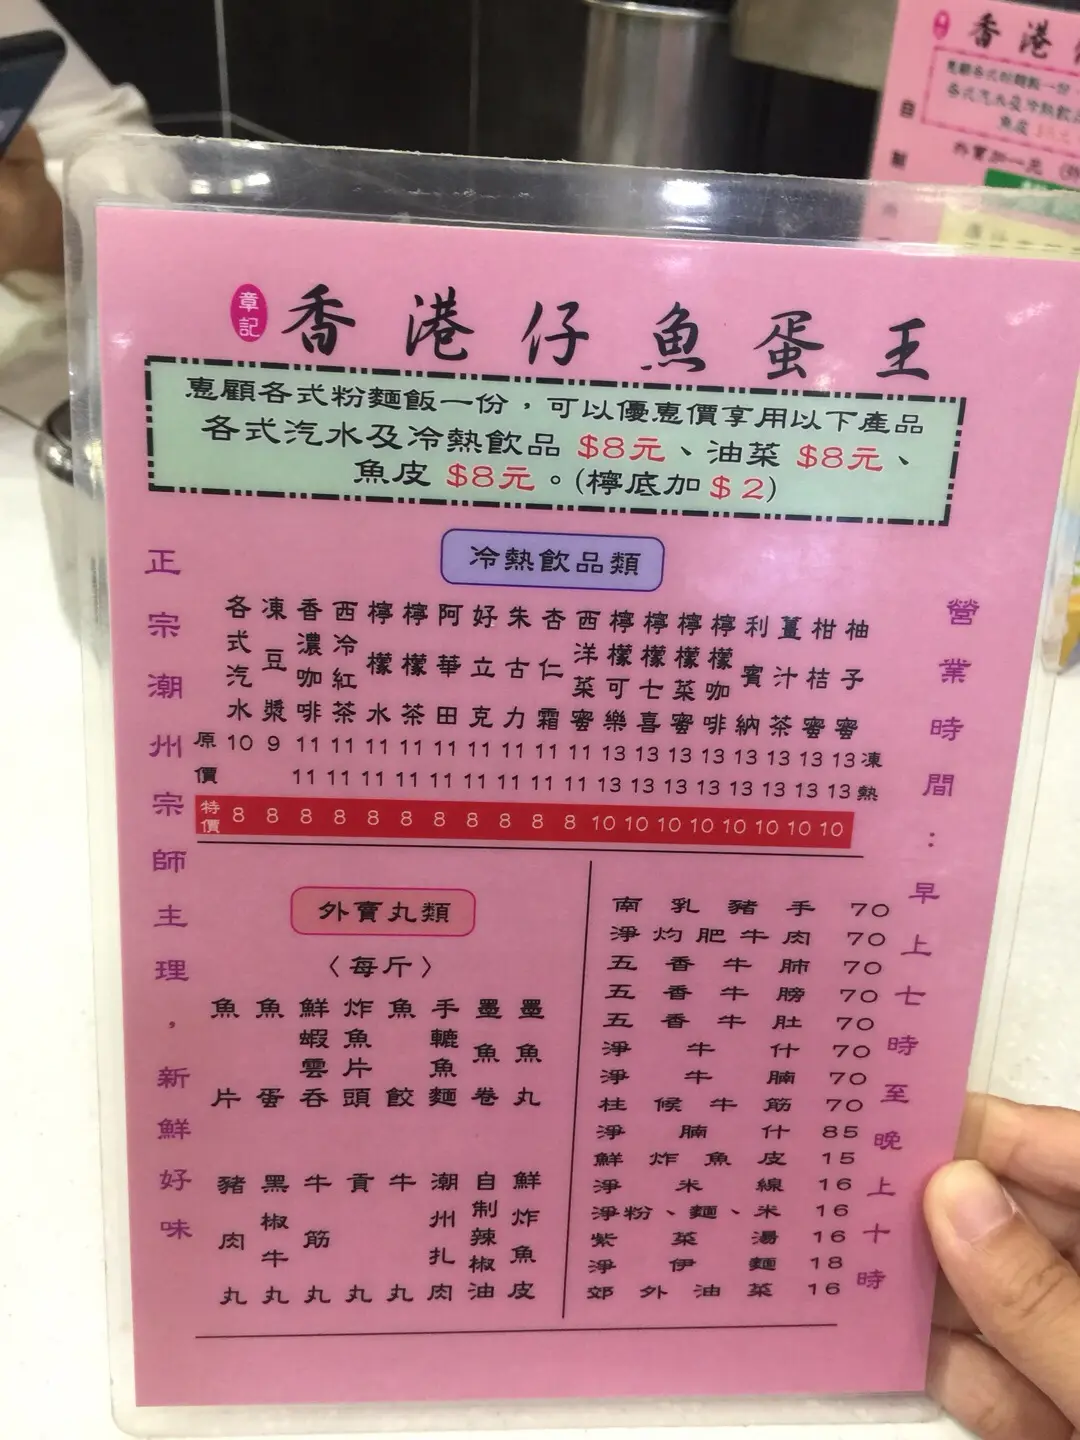 章記
香港仔魚蛋王
惠顧各式粉麵飯一份，可以優惠價享用以下產品
各式汽水及冷熱飲品 $8元、油菜 $8元、
魚皮 $8元。(檸底加 $2)
正宗潮州宗師主理，新鮮好味
冷熱飲品類
各式汽水 10 8
凍豆漿 9 8
香濃咖啡 11 11 8
西冷紅茶 11 11 8
檸檬水 11 11 8
檸檬茶 11 11 8
阿華田 11 11 8
好立克 11 11 8
朱古力 11 11 8
杏仁霜 11 11 8
西洋菜蜜 11 11 8
檸檬可樂 13 13 10
檸檬七喜 13 13 10
檸檬菜蜜 13 13 10
檸檬咖啡 13 13 10
利賓納 13 13 10
薑汁茶 13 13 10
柑桔蜜 13 13 10
柚子蜜 13 13 10
原價
凍
熱
特價
營業時間：早上七時至晚上十時
外賣丸類
〈每斤〉
魚片
魚蛋
鮮蝦雲吞
炸魚片頭
魚餃
手轆魚麵
墨魚卷
墨魚丸
豬肉丸
黑椒牛丸
牛筋丸
貢丸
牛丸
潮州扎肉
自制辣椒油
鮮炸魚皮
南乳豬手 70
淨灼肥牛肉 70
五香牛肺 70
五香牛膀 70
五香牛肚 70
淨牛什 70
淨牛腩 70
柱候牛筋 70
淨腩什 85
鮮炸魚皮 15
淨米線 16
淨粉、麵、米 16
紫菜湯 16
淨伊麵 18
郊外油菜 16
香港
惠顧各式粉麵飯一份
各式汽水及冷熱飲品
魚皮 $8元
外賣加一元
自
制